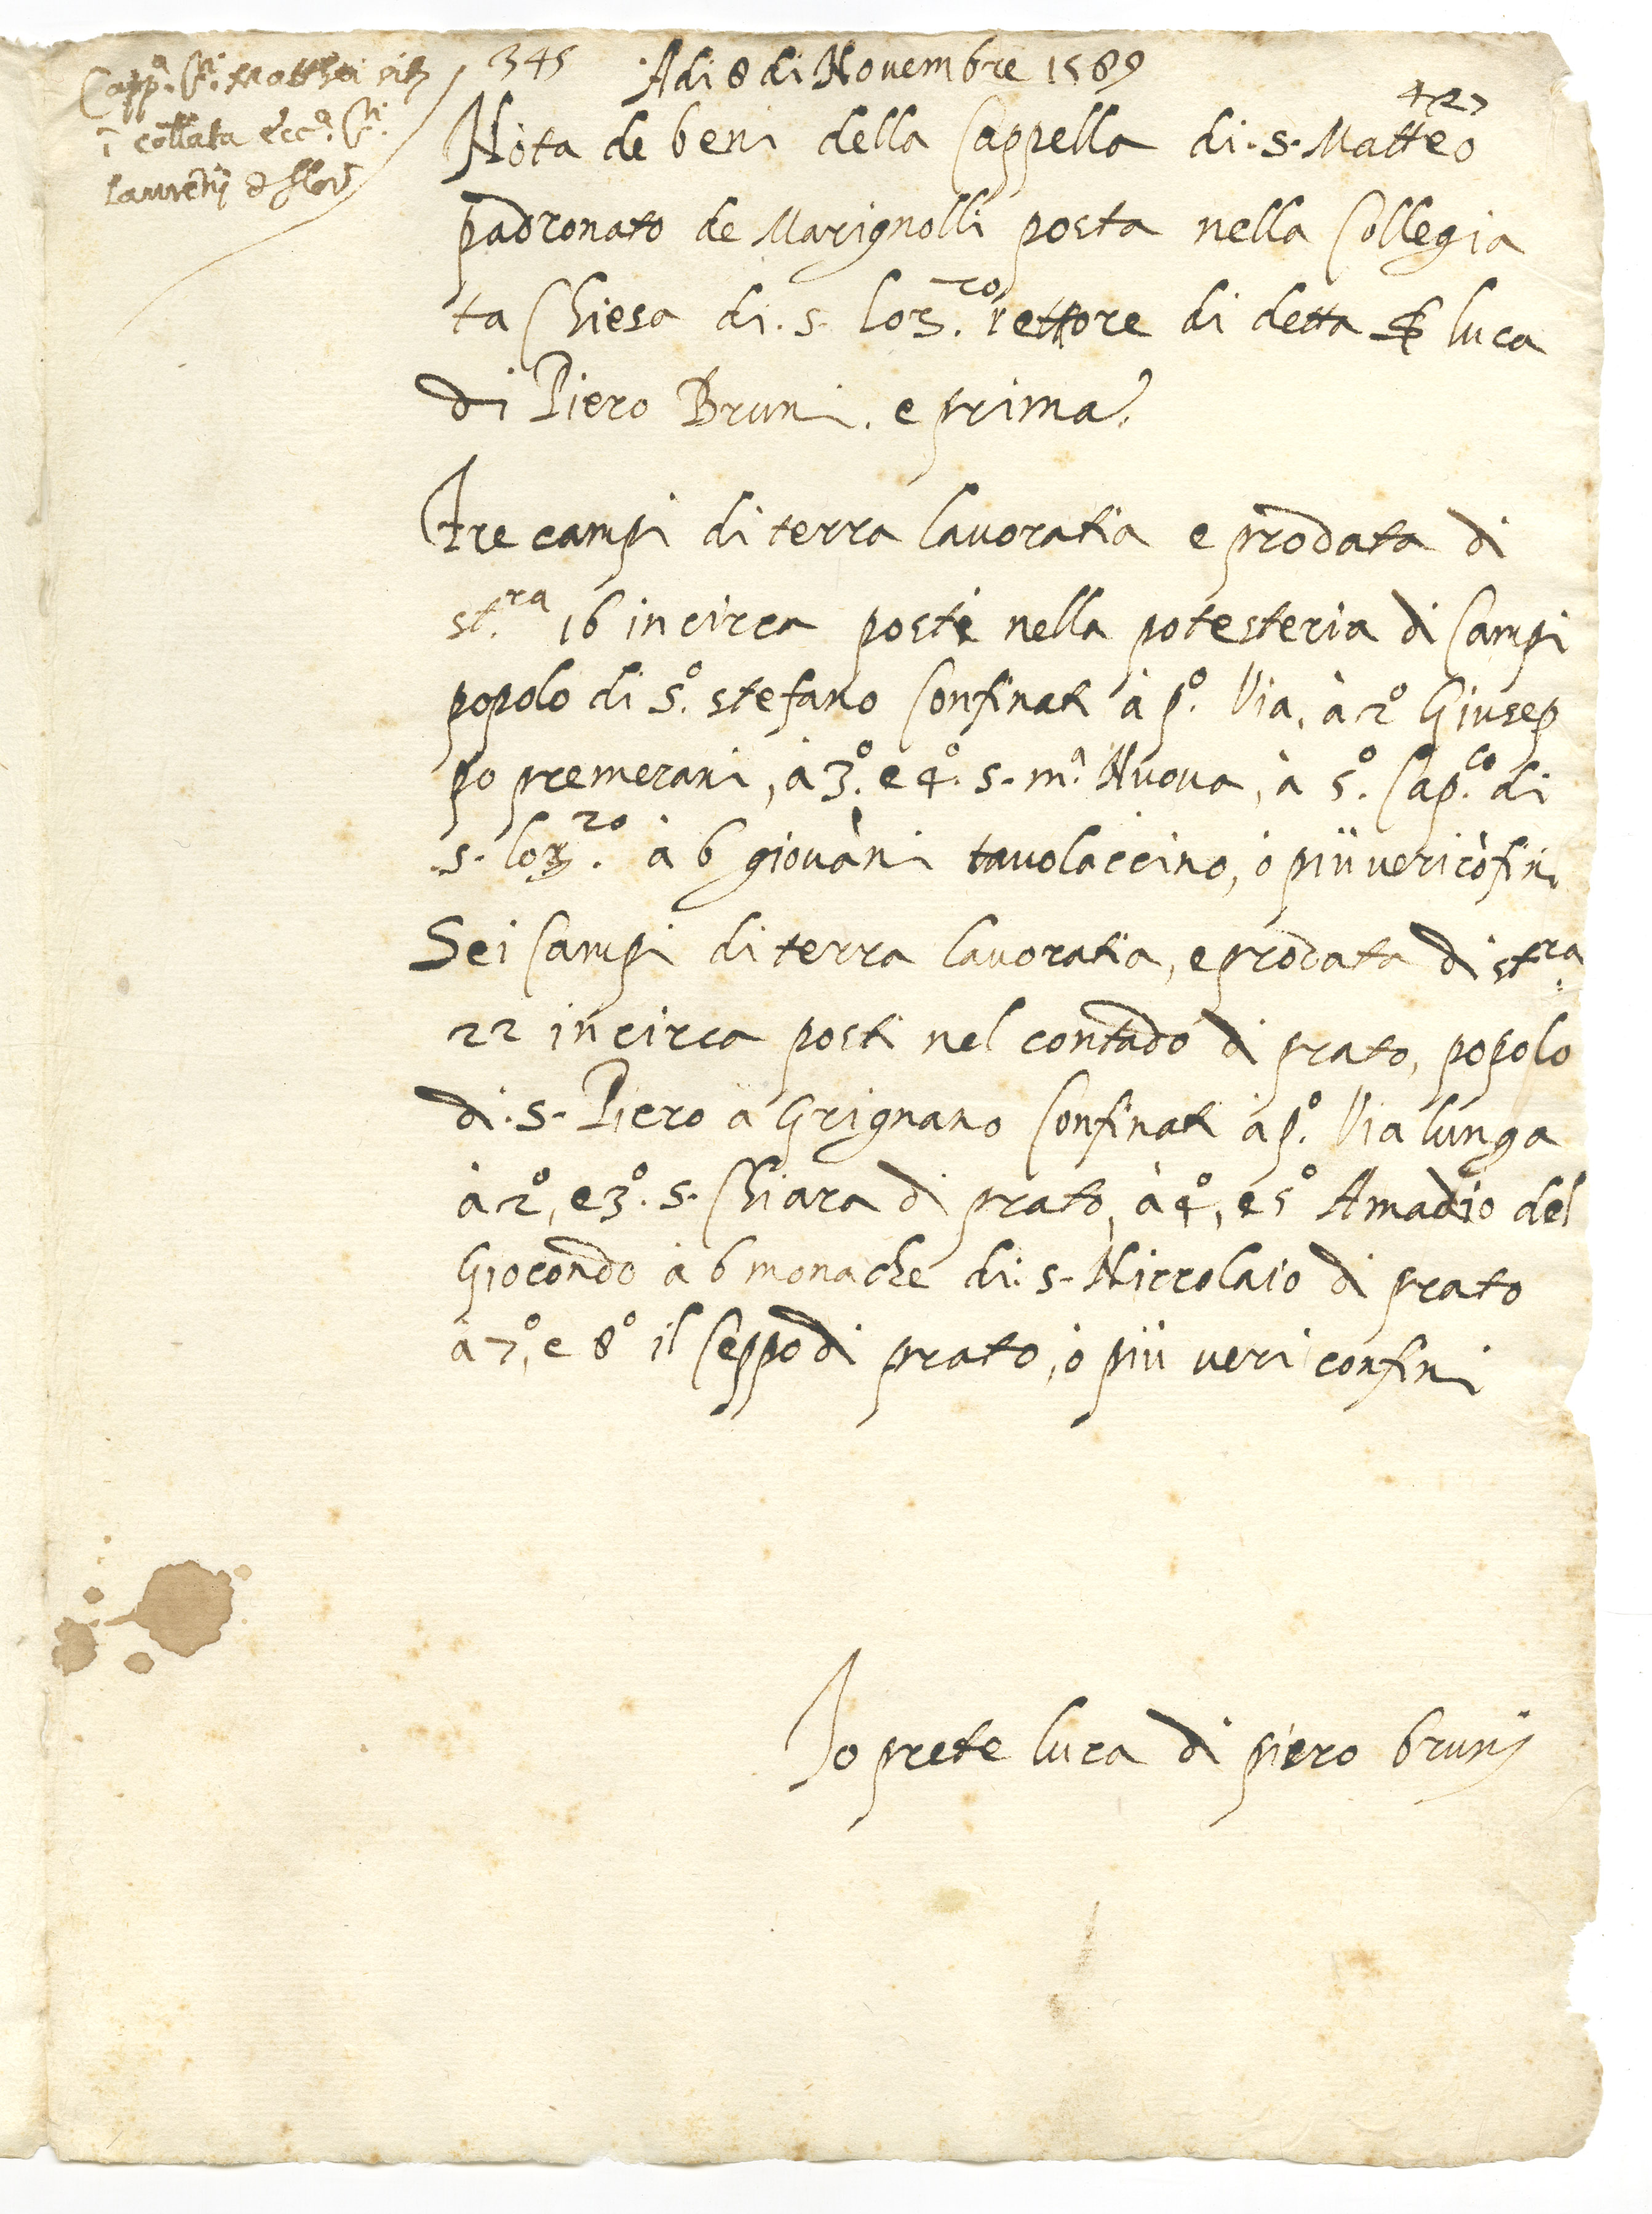 Capp.ª S.ti Matthei sita
ī collata ecc.ª S.ti
Laurētij d flor
345
Adi 8 di Novembre 1589
427
Nota de beni della Cappella di .s. Matteo
padronato de Marignolli posta nella Collegia
ta Chiesa di .s. Lor.zo rettore di detta Luca
di Piero Bruni. e prima.
Tre campi di terra lavoratia e prodata di
st.ra 16 incirca posti nella potesteria di Campi
popolo di S.º stefano Confinati à p.º Via, à 2º Giusep
po premerani, à 3.º e 4.º s. m.ª Nuova, à 5.º Cap.co di
.s. Lor.zo à 6 giovāni tavolaccino, ò più veri cōfini
Sei Campi di terra lavoratia, e prodata di st.ra
22 incirca posti nel contado di prato, popolo
di .s. Piero a Grignano Confinati à p.º Via lunga
à 2º, e 3º. s. Chiara di prato, à 4º, e 5º Amadio del
Giocondo à 6 monache di .s. Niccolaio di prato
à 7º, e 8º il Ceppo di prato, ò più veri confini
Io prete luca di piero brunj